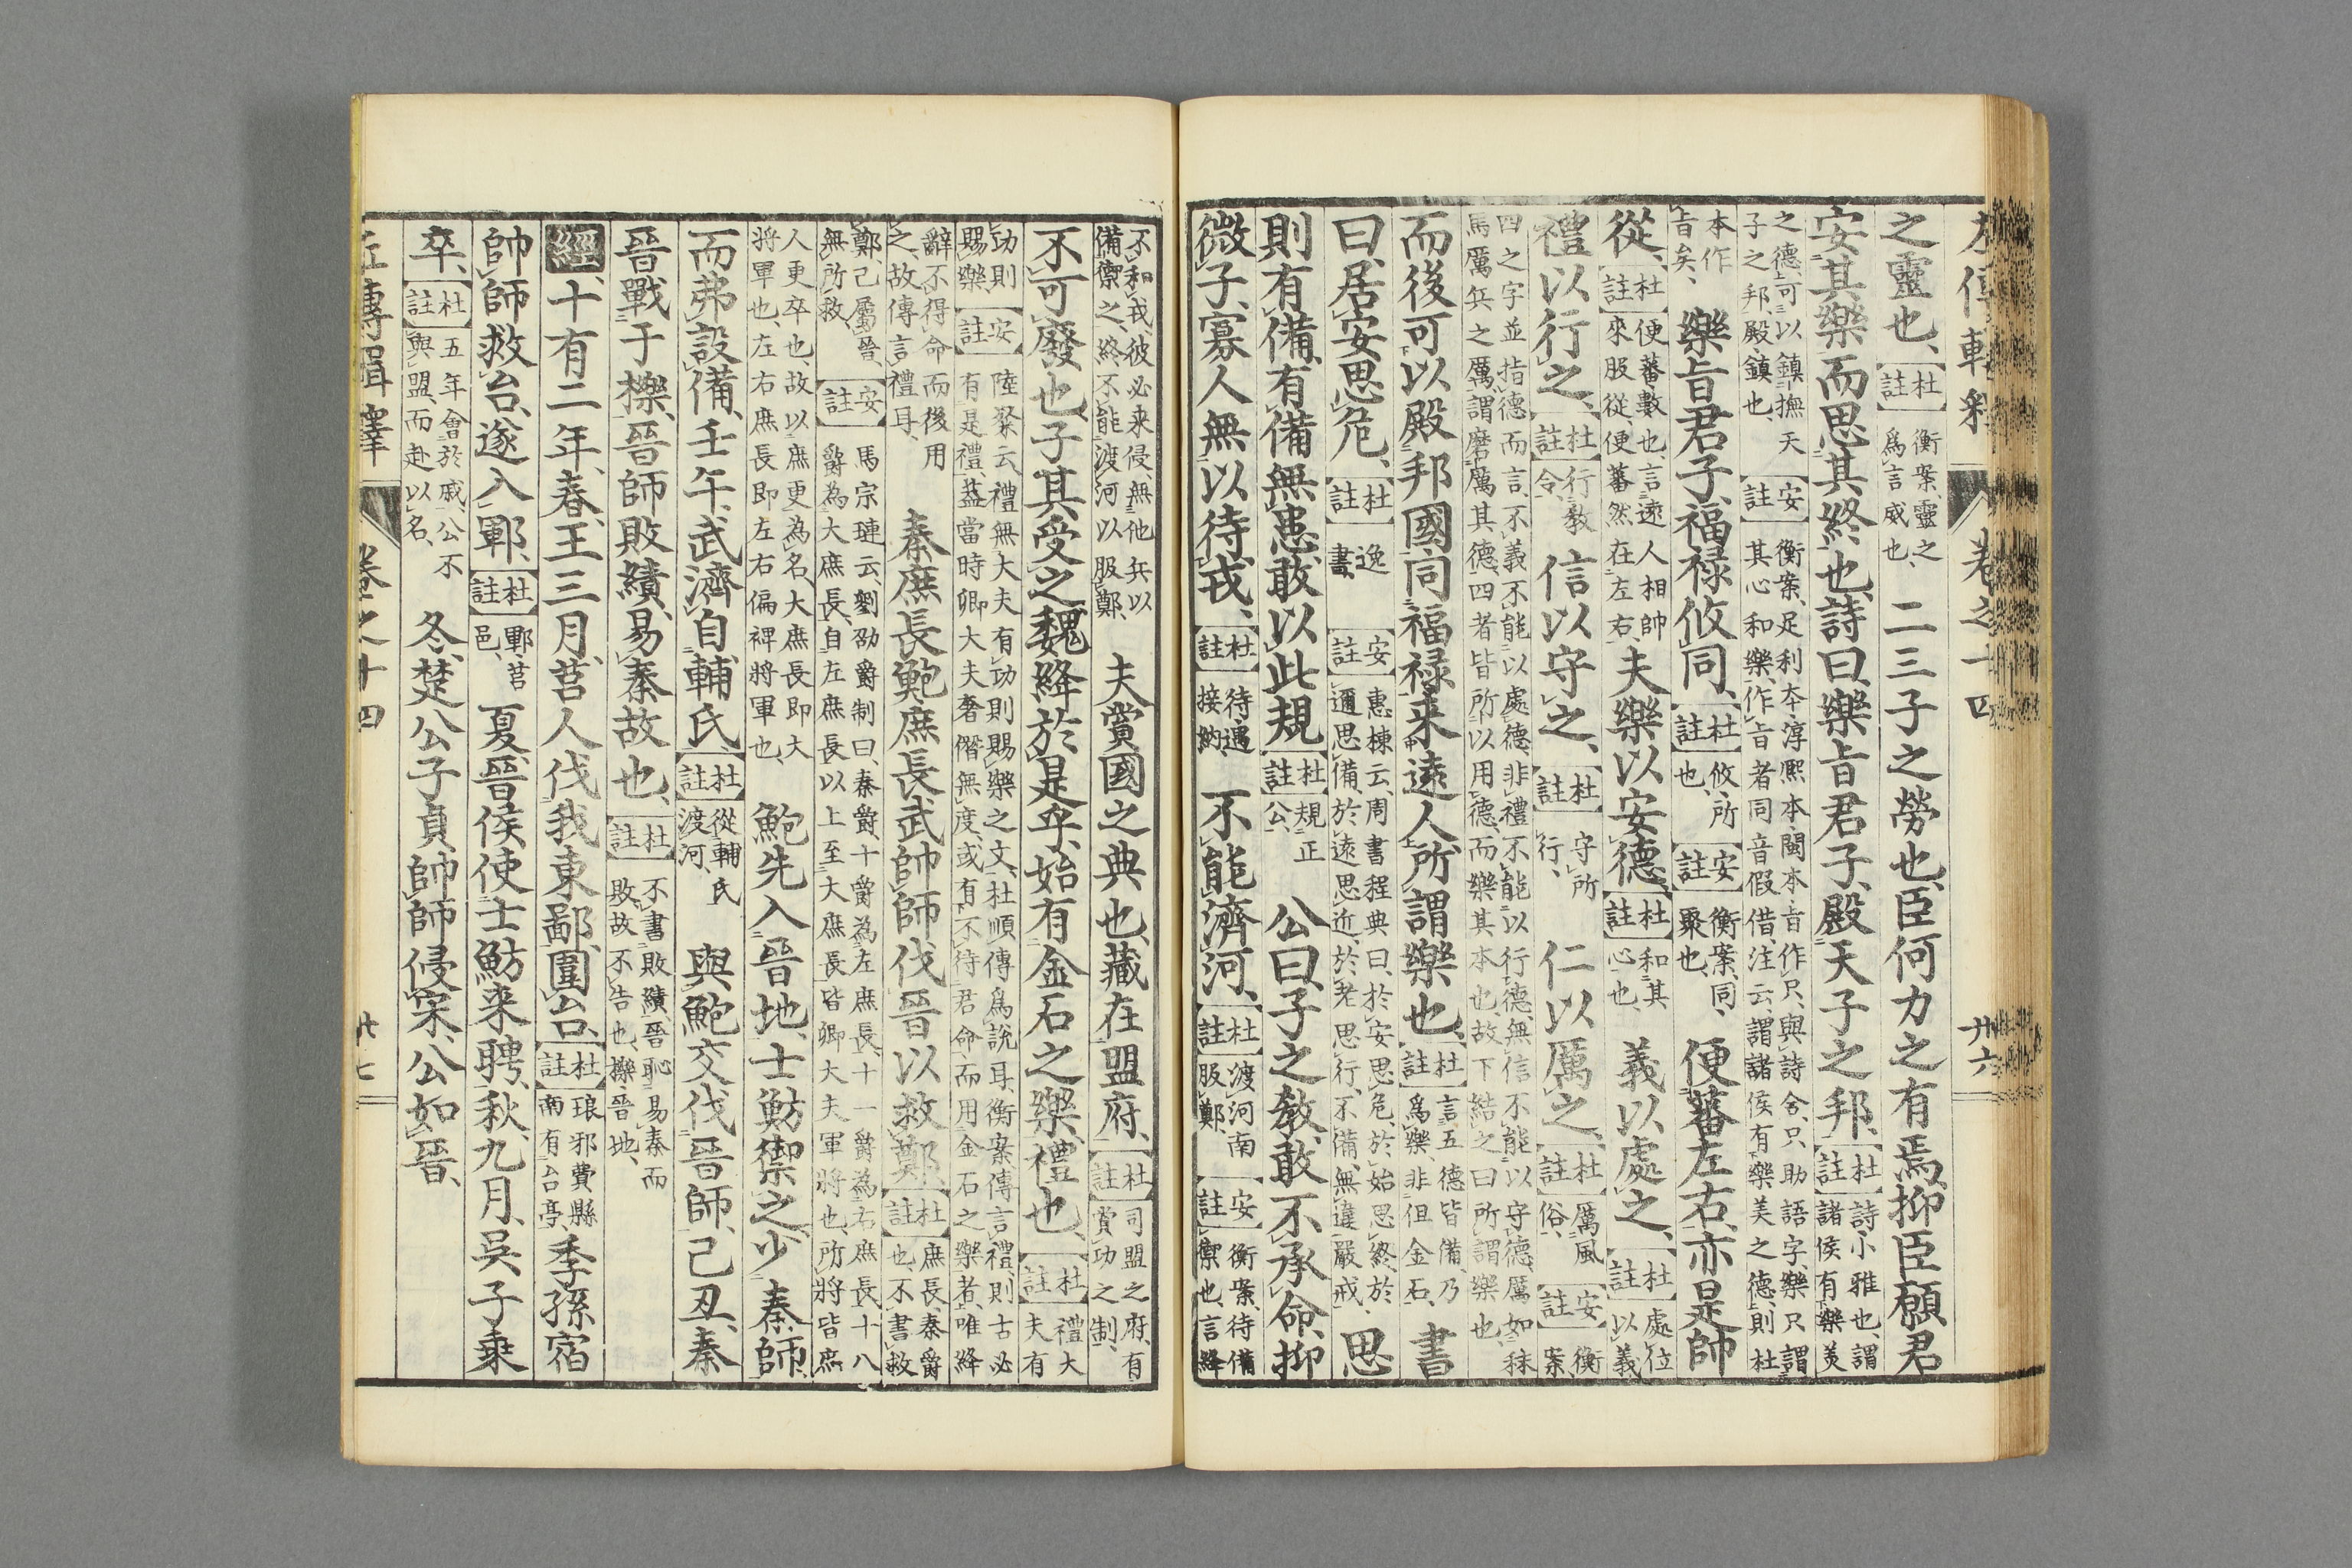 左傳輯釋 卷之十四 廿六
之靈也、杜註衡案、靈之為言威也、二三子之勞也、臣何力之有焉、抑臣願君
安其樂而思其終也、詩曰、樂旨君子、殿天子之邦、杜註詩小雅也、謂諸侯有樂美
之德、可以鎮撫天子之邦、殿、鎮也、安註衡案、足利本、淳熙本、閩本、旨作只、與詩合、只助語字、樂只謂其心和樂、作旨者同音假借、注云、謂諸侯有樂美之德、則杜
本作旨矣、樂旨君子、福禄攸同、杜註攸、所也、安註衡案、同、聚也、便蕃左右、亦是帥
從、杜註便蕃、數也、言遠人相帥來服從、便蕃然在左右、夫樂以安德、杜註和其心也、義以處之、杜註處位以義
禮以行之、杜註行教令、信以守之、杜註守所行、仁以厲之、杜註厲風俗、安註衡案、
四之字並指德而言、不義不能以處德、非禮不能以行德、無信不能以守德、厲如秣馬厲兵之厲、謂磨厲其德、四者皆所以用德、而樂其本也、故下結之曰所謂樂也
而後可以殿邦國、同福禄、来遠人、所謂樂也、杜註言五德皆備、乃為樂、非但金石、書
曰、居安思危、杜註逸書、安註惠棟云、周書程典曰、於安思危、於始思終、於邇思備、於遠思近、於老思行、不備、無違嚴戒、思
則有備、有備無患、敢以此規、杜註規正公、公曰、子之教、敢不承命、抑
微子、寡人無以待戎、杜註待遇接納、不能濟河、杜註渡河南服鄭、安註衡案、待備禦也、言絳
不和戎、彼必来侵、無他兵以備禦之、終不能渡河以服鄭、夫賞國之典也、藏在盟府、杜註司盟之府、有賞功之制、
不可廢也、子其受之、魏絳於是乎始有金石之樂、禮也、杜註禮大夫有
功則賜樂、安註陸粲云、禮無大夫有功則賜樂之文、杜順傳為說耳、衡案傳言禮、則古必有是禮、葢當時卿大夫奢僭無度、或有不待君命、而用金石之樂者、唯絳
辭不得命而後用之、故傳言禮耳、秦庶長鮑、庶長武、帥師伐晉以救鄭、杜註庶長、秦爵也、不書救
鄭、已屬晉、無所救、安註馬宗璉云、劉劭爵制曰、秦爵、十爵為左庶長、十一爵為右庶長、十八爵為大庶長、自左庶長以上至大庶長皆卿大夫軍將也、所將皆庶
人更卒也、故以庶更為名、大庶長即大將軍也、左右庶長即左右偏裨將軍也、鮑先入晉地、士魴禦之、少秦師、
而弗設備、壬午、武濟自輔氏、杜註從輔氏渡河、與鮑交伐晉師、己丑、秦
晉戰于櫟、晉師敗績、易秦故也、杜註不書敗績、晉恥易秦而敗、故不告也、櫟、晉地、
經、十有二年、春、王三月、莒人伐我東鄙、圍台、杜註琅邪費縣南有台亭、季孫宿
帥師救台、遂入鄆、杜註鄆、莒邑、夏、晉侯使士魴来聘、秋、九月、吳子乗
卒、杜註五年會於戚、公不與盟而赴以名、冬、楚公子貞帥師侵宋、公如晉、
左傳輯釋 卷之十四 廿七